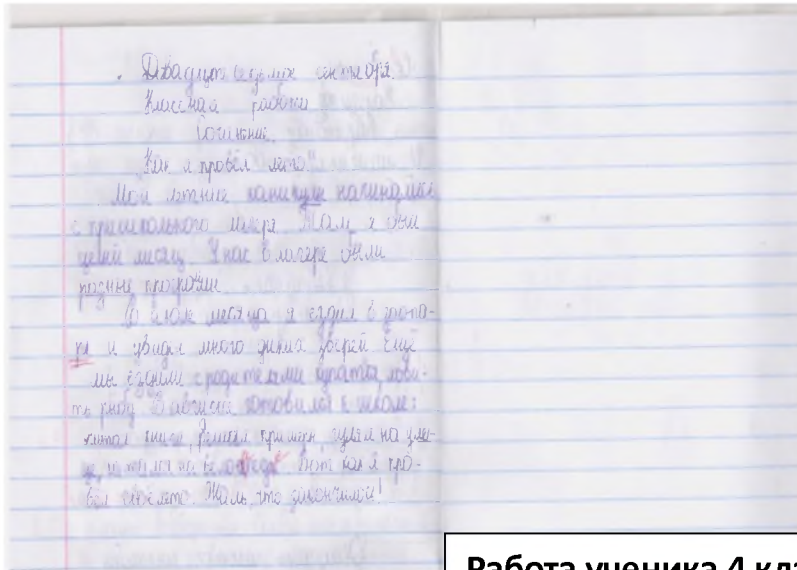 Двадцать седьмое сентября.
Классная работа
Сочинение.
Как я провёл лето.
Мои летние каникулы начинались
с пришкольного лагеря. Там я был
целый месяц. У нас в лагере были
разные программы.
месяца я ездил в зоопа-
и увидел много диких зверей Ещё
мы ездили с родителями купаться, лови-
ть рыбу. В августе готовился к школе:
читал книги, решал примеры, гулял на ули-
Вот как я про-
вёл своё лето. Жаль, что закончилось!
Работа ученика 4 кла